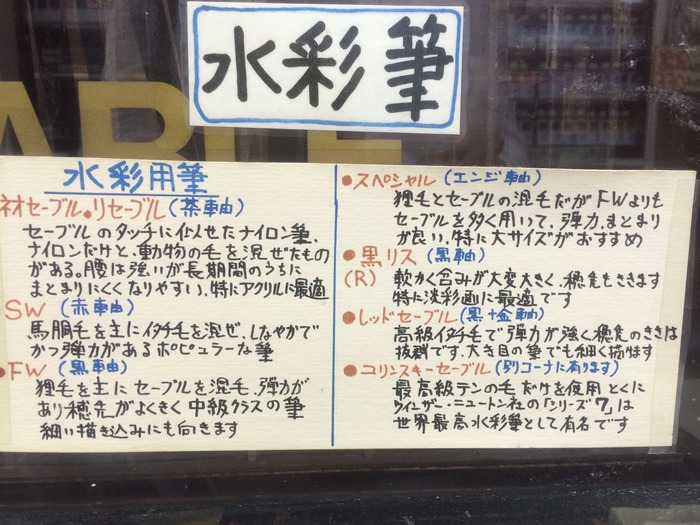 水彩筆
ABLE
水彩用筆
ネオセーブル・リセーブル(茶軸)
セーブルのタッチに似せたナイロン筆、
ナイロンだけと、動物の毛を混ぜたもの
がある。腰は強いが長期間のうちに
まとまりにくくなりやすい、特にアクリルに最適
SW(赤軸)
馬胴毛を主にイタチ毛を混ぜ、しなやかで
かつ弾力があるポピュラーな筆
●FW(黒軸)
狸毛を主にセーブルを混毛、弾力が
あり穂先がよくきく中級クラスの筆
細い描き込みにも向きます
●スペシャル(エンジ軸)
狸毛とセーブルの混毛だがFWよりも
セーブルを多く用いて、弾力、まとまり
が良い、特に大サイズがおすすめ
●黒リス(黒軸)
(R) 軟かく含みが大変大きく、穂先もききます
特に淡彩画に最適です
●レッドセーブル(黒+金軸)
高級イタチ毛で弾力が強く穂先のききは
抜群です、大き目の筆でも細く描けます
●コリンスキーセーブル(別コーナに有ります)
最高級テンの毛だけを使用 とくに
ウインザー・ニュートン社の「シリーズ7」は
世界最高水彩筆として有名です